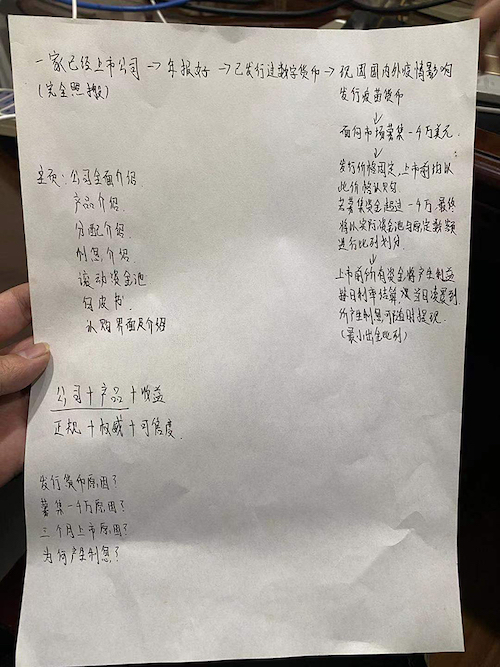 一家已经上市公司 → 年报好 → 已发行过数字货币 → 现因国内外疫情影响
(完全照搬)
发行疫苗货币
↓
面向市场募集一千万美元.
↓
发行价格固定,上市前均以
此价格认购.
若募集资金超过一千万,最终
将以实际资金池与原定数额
进行比列划分.
↓
上市前所有资金将产生利益
每日利率结算,
当日凌晨到
所产生利息可随时提现.
(最小出金比列)
主页:公司全面介绍
产品介绍.
分配介绍
利息介绍
滚动资金池
白皮书.
认购界面及介绍
公司+产品+收益
正规+权威+可信度.
发行货币原因?
募集一千万原因?
三个月上市原因?
为何产生利息?